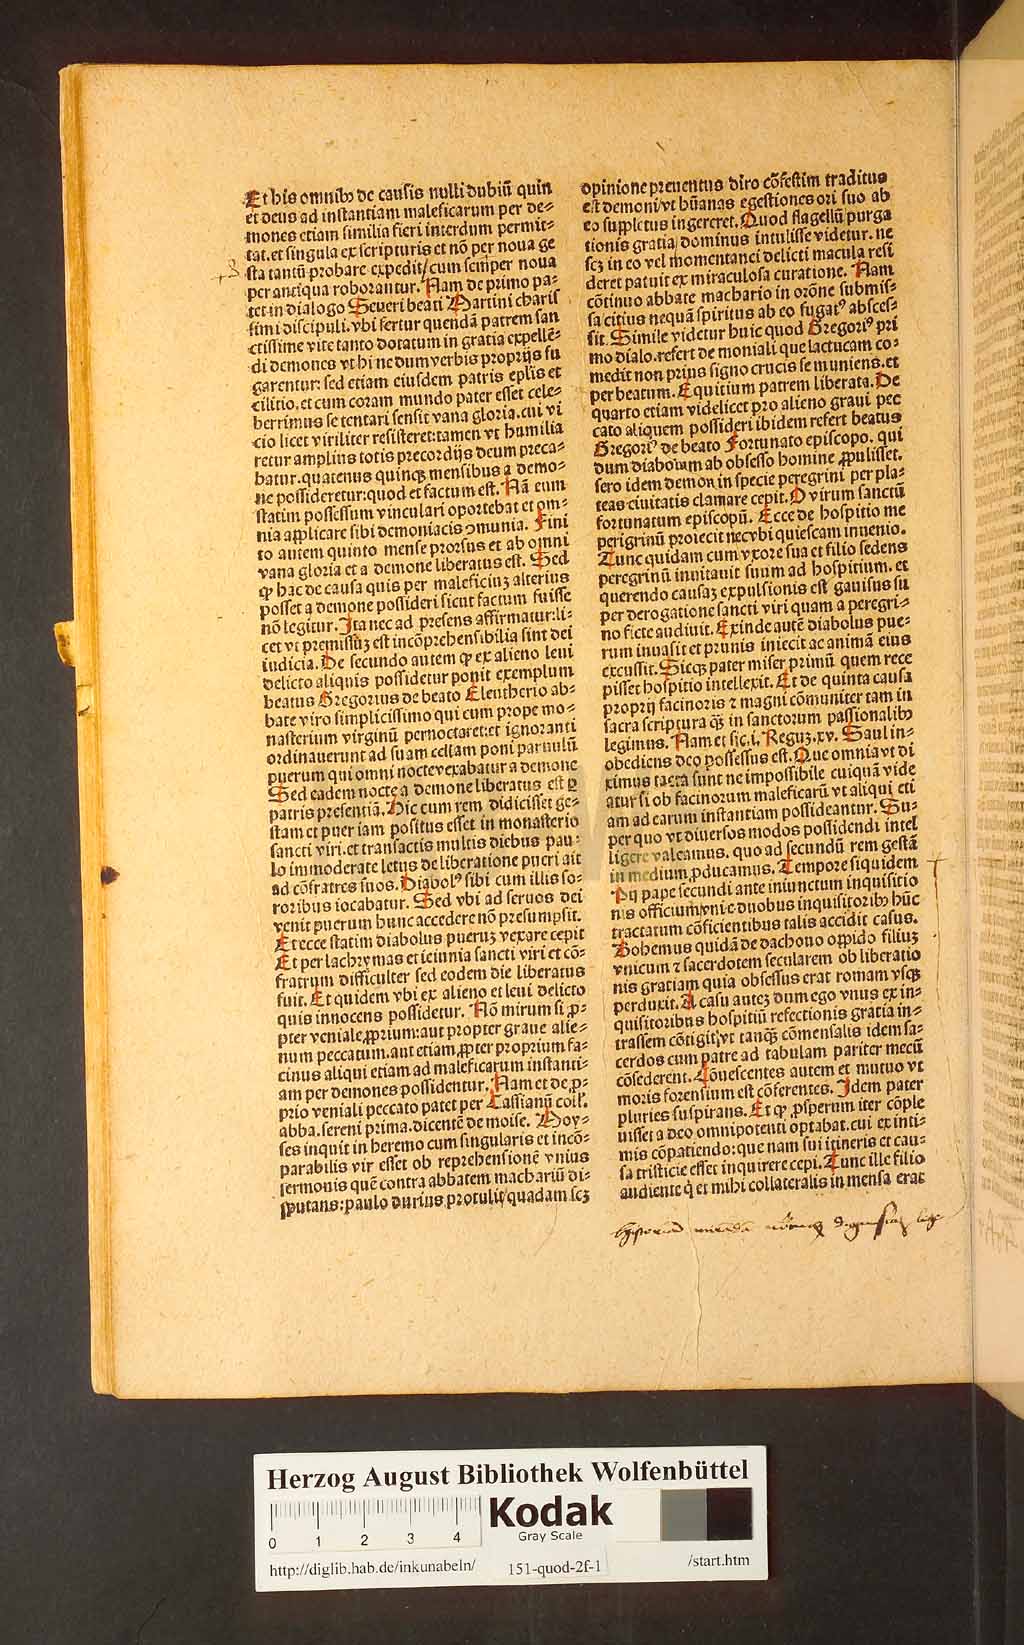 Et his omnibꝰ de causis nulli dubiū quin
et deus ad instantiam maleficarum per de⸗
mones etiam similia fieri interdum permit⸗
tat. et singula ex scripturis et nō per noua ge
sta tantū probare expedit / cum semper noua
per antiqua roborantur. Nam de primo pa⸗
tet in dialogo Seueri beati Martini charis
simi discipuli. vbi fertur quendā patrem san
ctissime vite tanto dotatum in gratia expellē⸗
di demones vt hi nedum verbis proprijs fu
garentur: sed etiam eiusdem patris eplis et
cilitio. et cum coram mundo pater esset cele⸗
berrimus se tentari sensit vana gloria. cui vi
cio licet viriliter resisteret: tamen vt humilia
retur amplius totis precordijs deum preca⸗
batur. quatenus quinqꝫ mensibus a demo⸗
ne possideretur: quod et factum est. Nā eum
statim possessum vinculari oportebat et om⸗
nia applicare sibi demoniacis ꝯmunia. Fini
to autem quinto mense prorsus et ab omni
vana gloria et a demone liberatus est. Sed
ꝙ hac de causa quis per maleficiuꝫ alterius
posset a demone possideri sicut factum fuisse
nō legitur. Ita nec ad presens affirmatur: li⸗
cet vt premissuꝫ est incōprehensibilia sint dei
iudicia. De secundo autem ꝙ ex alieno leui
delicto aliquis possidetur ponit exemplum
beatus Gregorius de beato Eleutherio ab⸗
bate viro simplicissimo qui cum prope mo⸗
nasterium virginū pernoctaret: et ignoranti
ordinauerunt ad suam cellam poni paruulū
puerum qui omni nocte vexabatur a demone
Sed eadem nocte a demone liberatus est ꝑ
patris presentiā. Hic cum rem didicisset ge⸗
stam et puer iam positus esset in monasterio
sancti viri. et transactis multis diebus pau⸗
lo immoderate letus de liberatione pueri ait
ad cōfratres suos. Diabolꝰ sibi cum illis so⸗
roribus iocabatur. Sed vbi ad seruos dei
venit puerum hunc accedere nō presumpsit.
Et ecce statim diabolus pueruꝫ vexare cepit
Et per lachrymas et ieiunia sancti viri et cō⸗
fratrum difficulter sed eodem die liberatus
fuit. Et quidem vbi ex alieno et leui delicto
quis innocens possidetur. Nō mirum si ꝓ⸗
pter veniale ꝓprium: aut propter graue alie⸗
num peccatum. aut etiam ꝓpter proprium fa⸗
cinus aliqui etiam ad maleficarum instanti⸗
am per demones possidentur. Nam et de ꝓ⸗
prio veniali peccato patet per Cassianū coll.
abba. sereni prima. dicentē de moise. Moy⸗
ses inquit in heremo cum singularis et incō⸗
parabilis vir esset ob reprehensionē vnius
sermonis quē contra abbatem machariū di⸗
sputans: paulo durius protulit / quadam scꝫ
opinione preuentus diro cōfestim traditus
est demoni / vt hūanas egestiones ori suo ab
eo suppletus ingereret. Quod flagellū purga
tionis gratia dominus intulisse videtur. ne
scꝫ in eo vel momentanei delicti macula resi
deret patuit ex miraculosa curatione. Nam
cōtinuo abbate machario in orōne submis⸗
sa citius nequā spiritus ab eo fugatꝰ absces⸗
sit. Simile videtur huic quod Gregoriꝰ pri
mo dialo. refert de moniali que lactucam co⸗
medit non prius signo crucis se muniens. et
per beatum. Equitium patrem liberata. De
quarto etiam videlicet pro alieno graui pec
cato aliquem possideri ibidem refert beatus
Gregoriꝰ de beato Fortunato episcopo. qui
dum diabolum ab obsesso homine ꝓpulisset.
sero idem demon in specie peregrini per pla⸗
teas ciuitatis clamare cepit. O virum sanctū
fortunatum episcopū. Ecce de hospitio me
perigrinū proiecit nec vbi quiescam inuenio.
Tunc quidam cum vxore sua et filio sedens
peregrinū inuitauit suum ad hospitium. et
querendo causaꝫ expulsionis est gauisus su
per derogatione sancti viri quam a peregri⸗
no ficte audiuit. Exinde autē diabolus pue⸗
rum inuasit et prunis iniecit ac animā eius
excussit. Sicqꝫ pater miser primū quem rece
pisset hospitio intellexit. Et de quinta causa
proprij facinoris ⁊ magni cōmuniter tam in
sacra scriptura qꝫ in sanctorum passionalibꝰ
legimus. Nam et sic. i. Reguꝫ. xv. Saul in⸗
obediens deo possessus est. Que omnia vt di
ximus tacta sunt ne impossibile cuiquā vide
atur si ob facinorum maleficarū vt aliqui eti
am ad earum instantiam possideantur. Su⸗
per quo vt diuersos modos possidendi intel
ligere valeamus. quo ad secundū rem gestā
in medium ꝓducamus. Tempore siquidem
Pij pape secundi ante iniunctum inquisitio
nis officium vni e duobus inquisitoribꝰ hūc
tractatum cōficientibus talis accidit casus.
Bohemus quidā de dachouo oppido filiuꝫ
vnicum ⁊ sacerdotem secularem ob liberatio
nis gratiam quia obsessus erat romam vsqꝫ
perduxit. A casu auteꝫ dum ego vnus ex in⸗
quisitoribus hospitiū refectionis gratia in⸗
trassem cōtigit / vt tanqꝫ cōmensalis idem sa⸗
cerdos cum patre ad tabulam pariter mecū
cōsederent. Cōuescentes autem et mutuo vt
moris forensium est cōferentes. Idem pater
pluries suspirans. Et ꝙ ꝓsperum iter cōple
uisset a deo omnipotenti optabat. cui ex inti⸗
mis cōpatiendo: que nam sui itineris et cau⸗
sa tristicie esset inquirere cepi. Tunc ille filio
audiente q̇ et mihi collateralis in mensa erat
Herzog August Bibliothek Wolfenbüttel
Kodak
Gray Scale
0 1 2 3 4
http://diglib.hab.de/inkunabeln/ 151-quod-2f-1 /start.htm